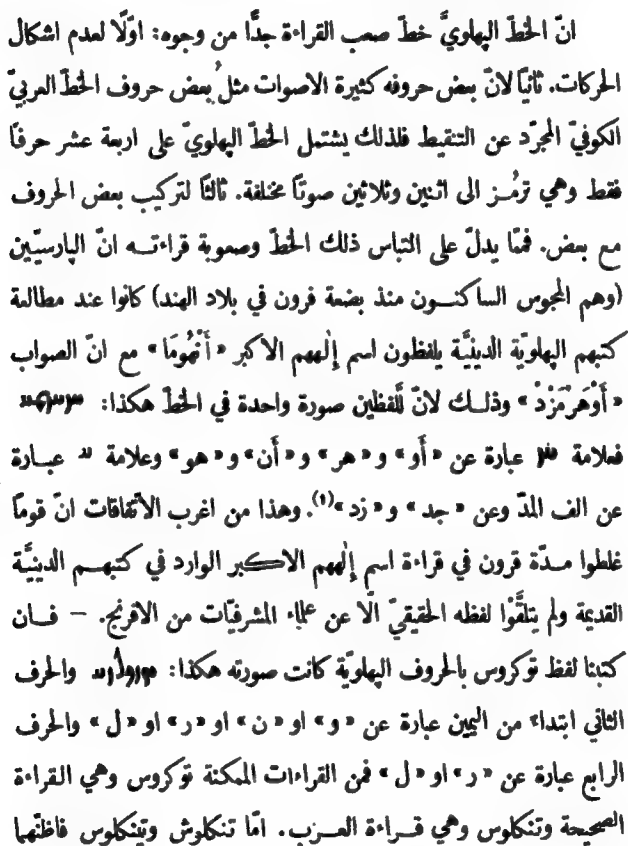 انّ الخطّ الپهلويَّ خطّ صعب القراءة جدًّا من وجوه: اوّلًا لعدم اشكال
الحركات. ثانياً لانّ بعض حروفه كثيرة الاصوات مثل بعض حروف الخطّ العربيّ
الكوفيّ المجرّد عن التنقيط فلذلك يشتمل الخطّ الپهلويّ على اربعة عشر حرفًا
فقط وهي ترمُز الى اثنين وثلاثين صوتًا مختلفة. ثالثًا لتركيب بعض الحروف
مع بعض. فممّا يدلّ على التباس ذلك الخطّ وصعوبة قراءته انّ الپارسيّين
(وهم المجوس الساكنون منذ بضعة قرون في بلاد الهند) كانوا عند مطالعة
كتبهم الپهلويّة الدينيَّة يلفظون اسم إلٰههم الاكبر « أَنْهُومَا » مع انّ الصواب
« أَوْهَرْمَزْدْ » وذلك لانّ للَّفظين صورة واحدة في الخطّ هكذا:
فعلامة عبارة عن « أو » و « هر » و « أن » و « هو » وعلامة عبارة
عن الف المدّ وعن « جد » و « زد »(١). وهذا من اغرب الاتّفاقات انّ قومًا
غلطوا مدّة قرون في قراءة اسم إلٰههم الاكبر الوارد في كتبهم الدينيَّة
القديمة ولم يتلقَّوْا لفظه الحقيقيّ الّا عن علماء المشرقيّات من الافرنج. – فان
كتبنا لفظ توكروس بالحروف الپهلويّة كانت صورته هكذا: والحرف
الثاني ابتداءً من اليمين عبارة عن « و » او « ن » او « ر » او « ل » والحرف
الرابع عبارة عن « ر » او « ل » فمن القراءات الممكنة توكروس وهي القراءة
الصحيحة وتنكلوس وهي قراءة العرب. امّا تنكلوش وتينكلوس فاظنّهما